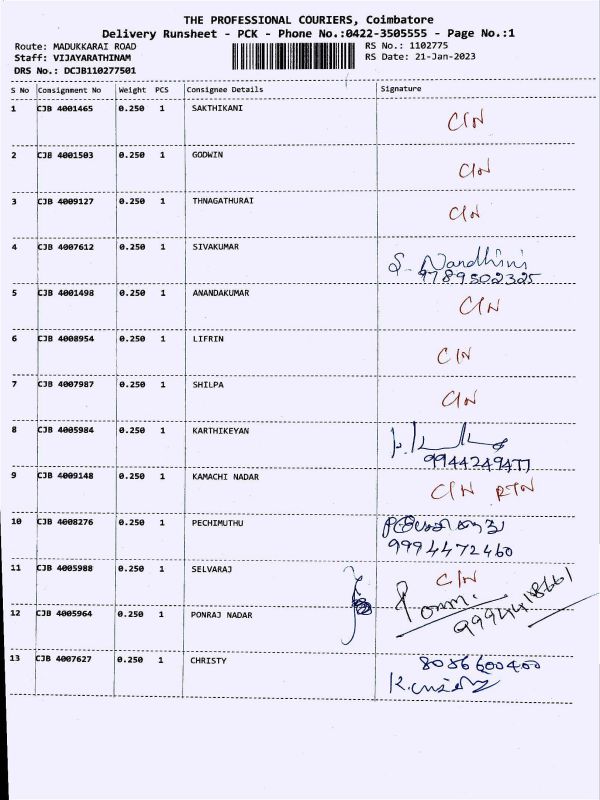 THE PROFESSIONAL COURIERS, Coimbatore
Delivery Runsheet - PCK - Phone No.:0422-3505555 - Page No.:1
Route: MADUKKARAI ROAD RS No.: 1102775
Staff: VIJAYARATHINAM RS Date: 21-Jan-2023
DRS No.: DCJB110277501
S No Consignment No Weight PCS Consignee Details Signature
1 CJB 4001465 0.250 1 SAKTHIKANI C/N
2 CJB 4001503 0.250 1 GODWIN C/N
3 CJB 4009127 0.250 1 THNAGATHURAI C/N
4 CJB 4007612 0.250 1 SIVAKUMAR S. Nandhini
9789502325
5 CJB 4001498 0.250 1 ANANDAKUMAR C/N
6 CJB 4008954 0.250 1 LIFRIN C/N
7 CJB 4007987 0.250 1 SHILPA C/N
8 CJB 4005984 0.250 1 KARTHIKEYAN
9944249477
9 CJB 4009148 0.250 1 KAMACHI NADAR C/N RTN
10 CJB 4008276 0.250 1 PECHIMUTHU
9994472460
11 CJB 4005988 0.250 1 SELVARAJ C/N
12 CJB 4005964 0.250 1 PONRAJ NADAR
9994418661
13 CJB 4007627 0.250 1 CHRISTY 8056600400